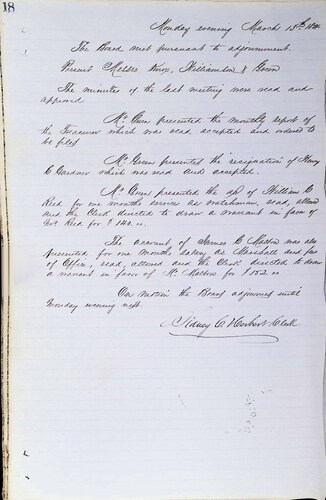 18
Monday evening March 15th
The Board met pursuant to adjournment.
Present Messrs Knox, Williamson & Goen
The minutes of the last meeting were read and
approved
Mr. Goen presented the monthly report of
the Treasurer which was read accepted and ordered to
be filed
Mr. Goen presented the resignation of Henry
C Gardner which was read and accepted.
Mr. Goen presented the a/c of William C
Reed for one months services as watchman, read, allowed
and the Clerk directed to draw a warrant in favor of
Wm Reed for $140.00
The account of James C was also
presented for one months salary as Marshall and for
of Office, read, allowed and the Clerk directed to draw
a warrant in favor of Mr for $152.00
On motion the Board adjourned until
Monday evening next.
Sidney C Herbert Clerk